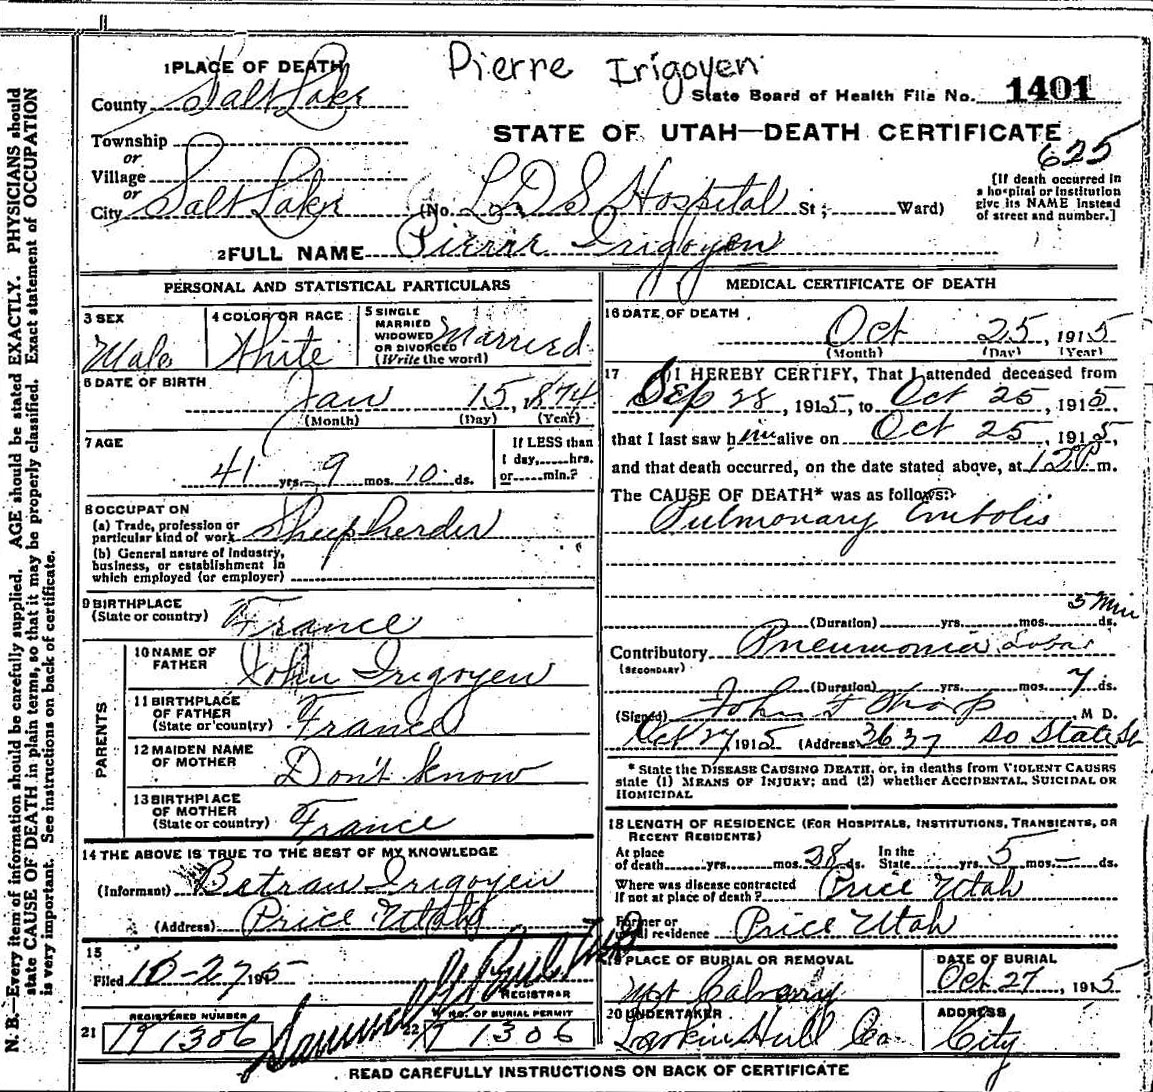 Pierre Irigoyen
1 PLACE OF DEATH
County Salt Lake
State Board of Health File No. 1401
Township
or
Village
or
City Salt Lake
STATE OF UTAH—DEATH CERTIFICATE
625
(No. L D S Hospital St; Ward)
[If death occurred in
a hospital or institution
give its NAME instead
of street and number.]
2 FULL NAME Pierre Irigoyen
PERSONAL AND STATISTICAL PARTICULARS
3 SEX
Male
4 COLOR OR RACE
White
5 SINGLE
MARRIED
WIDOWED
OR DIVORCED
(Write the word)
Married
6 DATE OF BIRTH
Jan 15, 1874
(Month) (Day) (Year)
7 AGE
41 yrs. 9 mos. 10 ds.
If LESS than
1 day, hrs.
or min.?
8 OCCUPATION
(a) Trade, profession or
particular kind of work Sheepherder
(b) General nature of industry,
business, or establishment in
which employed (or employer)
9 BIRTHPLACE
(State or country) France
PARENTS
10 NAME OF
FATHER John Irigoyen
11 BIRTHPLACE
OF FATHER
(State or country) France
12 MAIDEN NAME
OF MOTHER Don't know
13 BIRTHPLACE
OF MOTHER
(State or country) France
14 THE ABOVE IS TRUE TO THE BEST OF MY KNOWLEDGE
(Informant) Betran Irigoyen
(Address) Price Utah
15
Filed 10-27 1915
REGISTRAR
21 REGISTERED NUMBER
1306
22 NO. OF BURIAL PERMIT
1306
MEDICAL CERTIFICATE OF DEATH
16 DATE OF DEATH
Oct 25, 1915
(Month) (Day) (Year)
17 I HEREBY CERTIFY, That I attended deceased from
Sep 28, 1915, to Oct 25, 1915,
that I last saw him alive on Oct 25, 1915,
and that death occurred, on the date stated above, at m.
The CAUSE OF DEATH* was as follows:
Pulmonary Embolis
3 Min
(Duration) yrs. mos. ds.
Contributory Pneumonia Lobar
(SECONDARY)
(Duration) yrs. mos. 7 ds.
(Signed) John F Tharp M D.
Oct 27 1915 (Address) 3637 So State St
* State the DISEASE CAUSING DEATH, or, in deaths from VIOLENT CAUSES
state (1) MEANS OF INJURY; and (2) whether ACCIDENTAL, SUICIDAL OR
HOMICIDAL
18 LENGTH OF RESIDENCE (FOR HOSPITALS, INSTITUTIONS, TRANSIENTS, OR
RECENT RESIDENTS)
At place
of death yrs. mos. 28 ds.
In the
State yrs. 5 mos. – ds.
Where was disease contracted
if not at place of death? Price Utah
Former or
usual residence Price Utah
19 PLACE OF BURIAL OR REMOVAL
Mt Calvary
DATE OF BURIAL
Oct 27, 1915
20 UNDERTAKER
Larkin Hull Co
ADDRESS
City
READ CAREFULLY INSTRUCTIONS ON BACK OF CERTIFICATE
N. B.—Every item of information should be carefully supplied. AGE should be stated EXACTLY. PHYSICIANS should
state CAUSE OF DEATH in plain terms, so that it may be properly classified. Exact statement of OCCUPATION
is very important. See instructions on back of certificate.